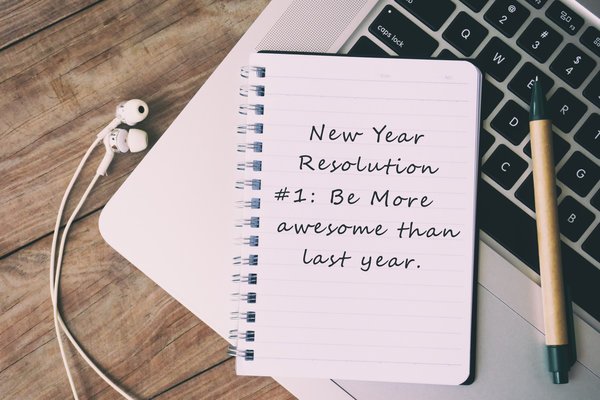 New Year
Resolution
#1: Be More
awesome than
last year.
caps lock
Q
W
E
R
D
C
F
G
V
B
@
2
#
3
$
4